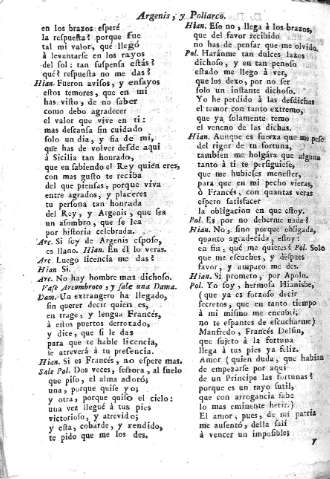 Argenis, y Poliarco.
en los brazos: esperé
la respuesta? porque fue
tal mi valor, que llegó
à levantarse en los rayos
del sol: tan suspensa estás?
què? respuesta no me das?
Hian. Fueron avisos, y ensayos
estos temores, que en mi
has visto, de no saber
como debo agradecer
el valor que vive en ti:
mas descansa sin cuidado
solo un dia, y fia de mi,
que has de volver desde aqui
à Sicilia tan honrado,
que en sabiendo el Rey quièn eres,
con mas gusto te reciba
del que piensas, porque viva
entre agrados, y placeres
tu persona tan honrada
del Rey, y Argenis, que sea
un asombro, que se lea
por historia celebrada.
Arc. Si soy de Argenis esposo,
es llano. Hian. En èl lo veras.
Arc. Luego licencia me das?
Hian Si.
Arc. No hay hombre mas dichoso.
Vase Arcombroto, y sale una Dama.
Dam. Un extrangero ha llegado,
sin querer decir quièn es,
en trage, y lengua Francès,
à estos puertos derrotado,
y dice, que si le das
para que te hable licencia,
se atreverá à tu presencia.
Hian. Si es Francès, no espere mas.
Sale Pol. Dos veces, señora, al suelo
que piso, el alma adorò,
una, porque quise yo;
y otra, porque quiso el cielo:
una vez lleguè à tus pies
victorioso, y atrevido;
y esta, cobarde, y rendido,
te pido que me los des.
Hian. Eso no, llega à los brazos,
que del favor recibido
no has de pensar que me olvido.
Pol. Hariànme tan dulces lazos
dichoso, y en tan penoso
estado me llego à ver,
que los dexo, por no ser
solo un instante dichoso.
Yo he perdido à las desdichas
el temor con tanto extremo,
que ya solamente temo
el veneno de las dichas.
Hian. Aunque es fuerza que me pese
del rigor de tu fortuna,
tambien me holgára que alguna
tanto à ti te persiguiese,
que me hubieses menester,
para que en mi pecho vieras,
ò Francès, con quantas veras
espero satisfacer
la obligacion en que estoy.
Pol. Es por no deberme nada?
Hian. No, sino porque obligada,
quanto agradecida, estoy:
en fin, què me quieres? Pol. Solo
que me escuches, y despues
favor, y amparo me des.
Hian. Sì prometo, por Apolo.
Pol. Yo soy, hermosa Hianisbe,
(que ya es forzoso decir
secretos, que en tanto tiempo
à mi mismo me encubrì;
no te espantes de escucharme)
Manfredo, Francès Delfin,
que sujeto à la fortuna
llega à tus pies ya feliz.
Amor (quien duda, que habian
de empezarse por aqui
de un Principe las fortunas?
porque es un rayo sutil,
que con arrogancia sabe
lo mas eminente herir.)
El amor, pues, de mi patria
me ausentò, della salì
à vencer un imposibles
y